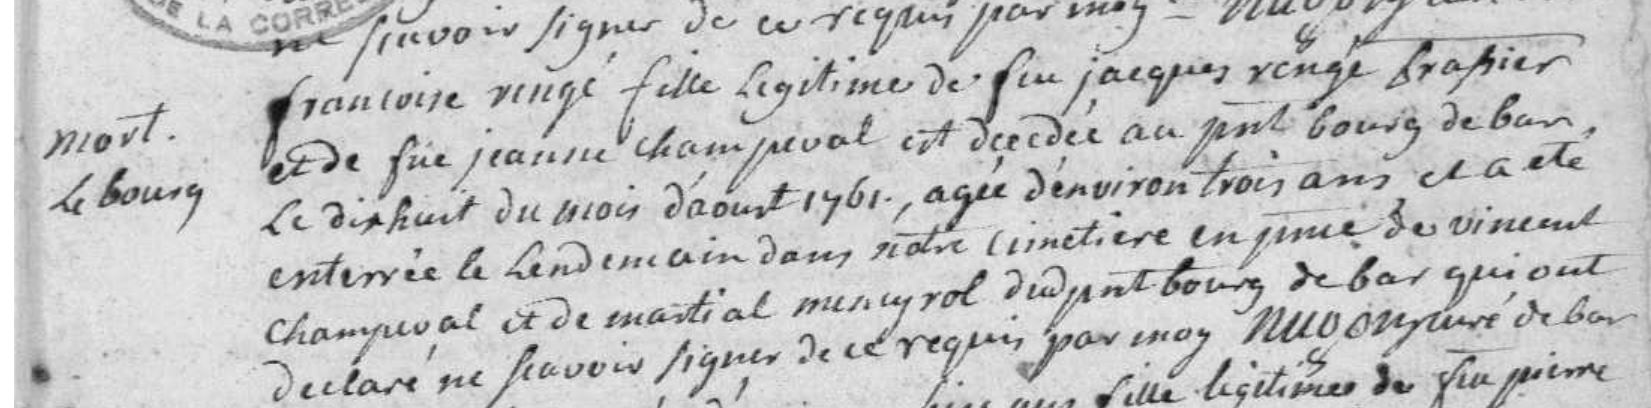 DE LA CORRE
ne scavoir signer de ce requis par moy
mort.
Le bourg
francoise rengé fille Legitime de feu jacques rengé
et de fue jeanne champeval est decedée au pnt bourg de bar,
Le dixhuit du mois d'aoust 1761., agée d'environ trois ans et a eté
enterrée le Lendemain dans notre cimetiere en pnce de vincent
champeval et de martial meneyrol dud pnt bourg de bar qui ont
declaré ne scavoir signer de ce requis par moy curé de bar
ans fille legitime de feu pierre